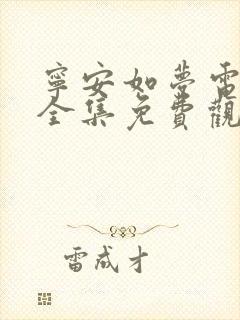 寧安如夢電
全集免費觀
雷成才